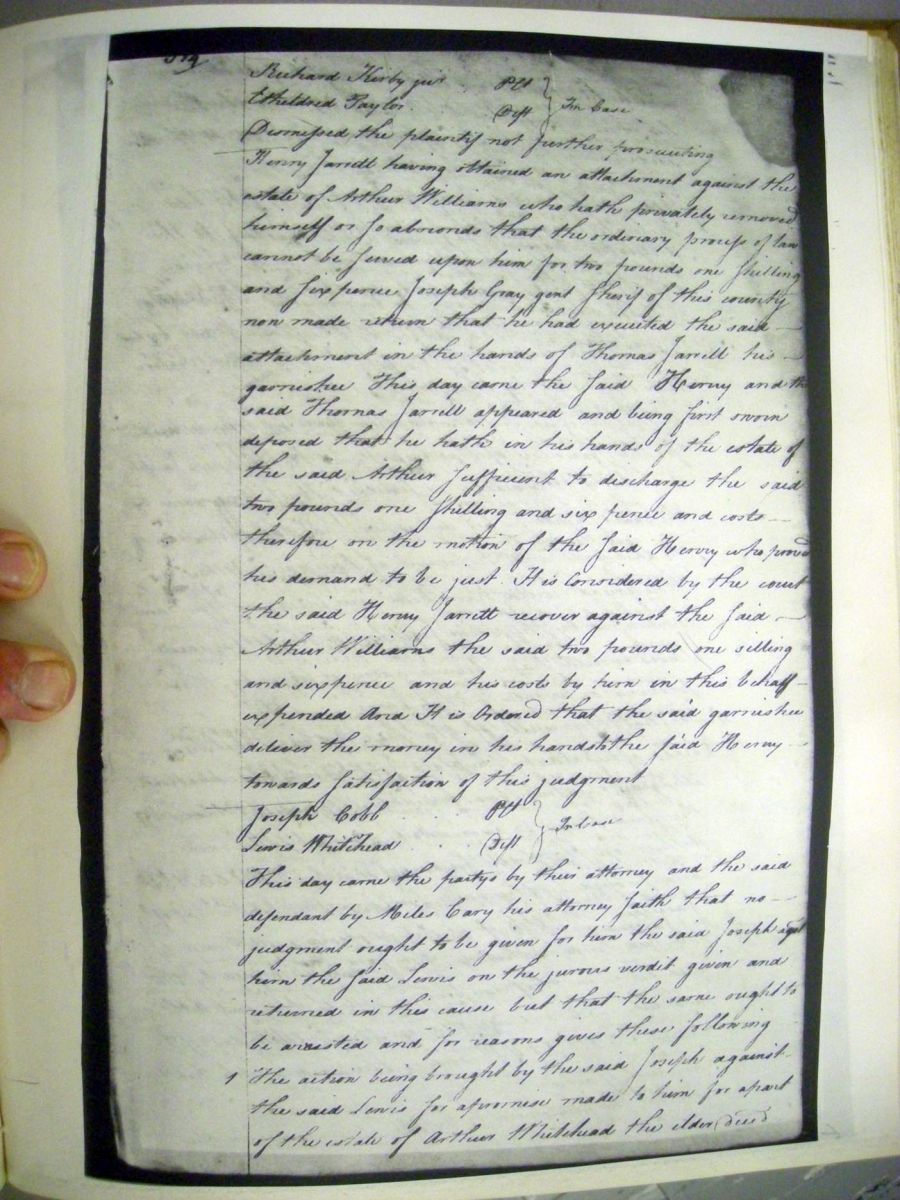 Richard Kirby jur Plt
Etheldred Taylor Deft } In Case
Dismissed the plaintif not further prosecuting
Henry Jarrell having obtained an attachment against the
estate of Arthur Williams who hath privately removed
himself or so absconds that the ordinary process of law
cannot be served upon him for two pounds one shilling
and six pence Joseph Gray gent Sherif of this county
now made return that he had executed the said
attachment in the hands of Thomas Jarrell his
garnishee This day came the said Henry and the
said Thomas Jarrell appeared and being first sworn
deposed that he hath in his hands of the estate of
the said Arthur sufficient to discharge the said
two pounds one shilling and six pence and costs
therefore on the motion of the said Henry who proved
his demand to be just It is Considered by the court
the said Henry Jarrell recover against the said
Arthur Williams the said two pounds one silling
and sixpence and his costs by him in this behalf
expended And It is Ordered that the said garnishee
deliver the money in his hands to the said Henry
towards satisfaction of this judgment
Joseph Cobb Plt
Lewis Whitehead Deft } In Case
This day came the partys by their attorney and the said
defendant by Miles Cary his attorney saith that no
judgment ought to be given for him the said Joseph agst
him the said Lewis on the jurous verdit given and
returned in this cause but that the same ought to
be arrested and for reasons gives these following
1 The action being brought by the said Joseph against
the said Lewis for apromise made to him for apart
of the estate of Arthur Whitehead the elder decd